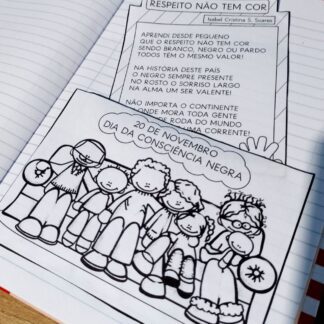 RESPEITO NÃO TEM COR
Isabel Cristina S. Soares
APRENDI DESDE PEQUENO
QUE O RESPEITO NÃO TEM COR
SENDO BRANCO, NEGRO OU PARDO
TODOS TÊM O MESMO VALOR!
NA HISTÓRIA DESTE PAÍS
O NEGRO SEMPRE PRESENTE
NO ROSTO O SORRISO LARGO
NA ALMA UM SER VALENTE!
NÃO IMPORTA O CONTINENTE
ONDE MORA TODA GENTE
RODA DO MUNDO
UMA CORRENTE!
20 DE NOVEMBRO
DIA DA CONSCIÊNCIA NEGRA